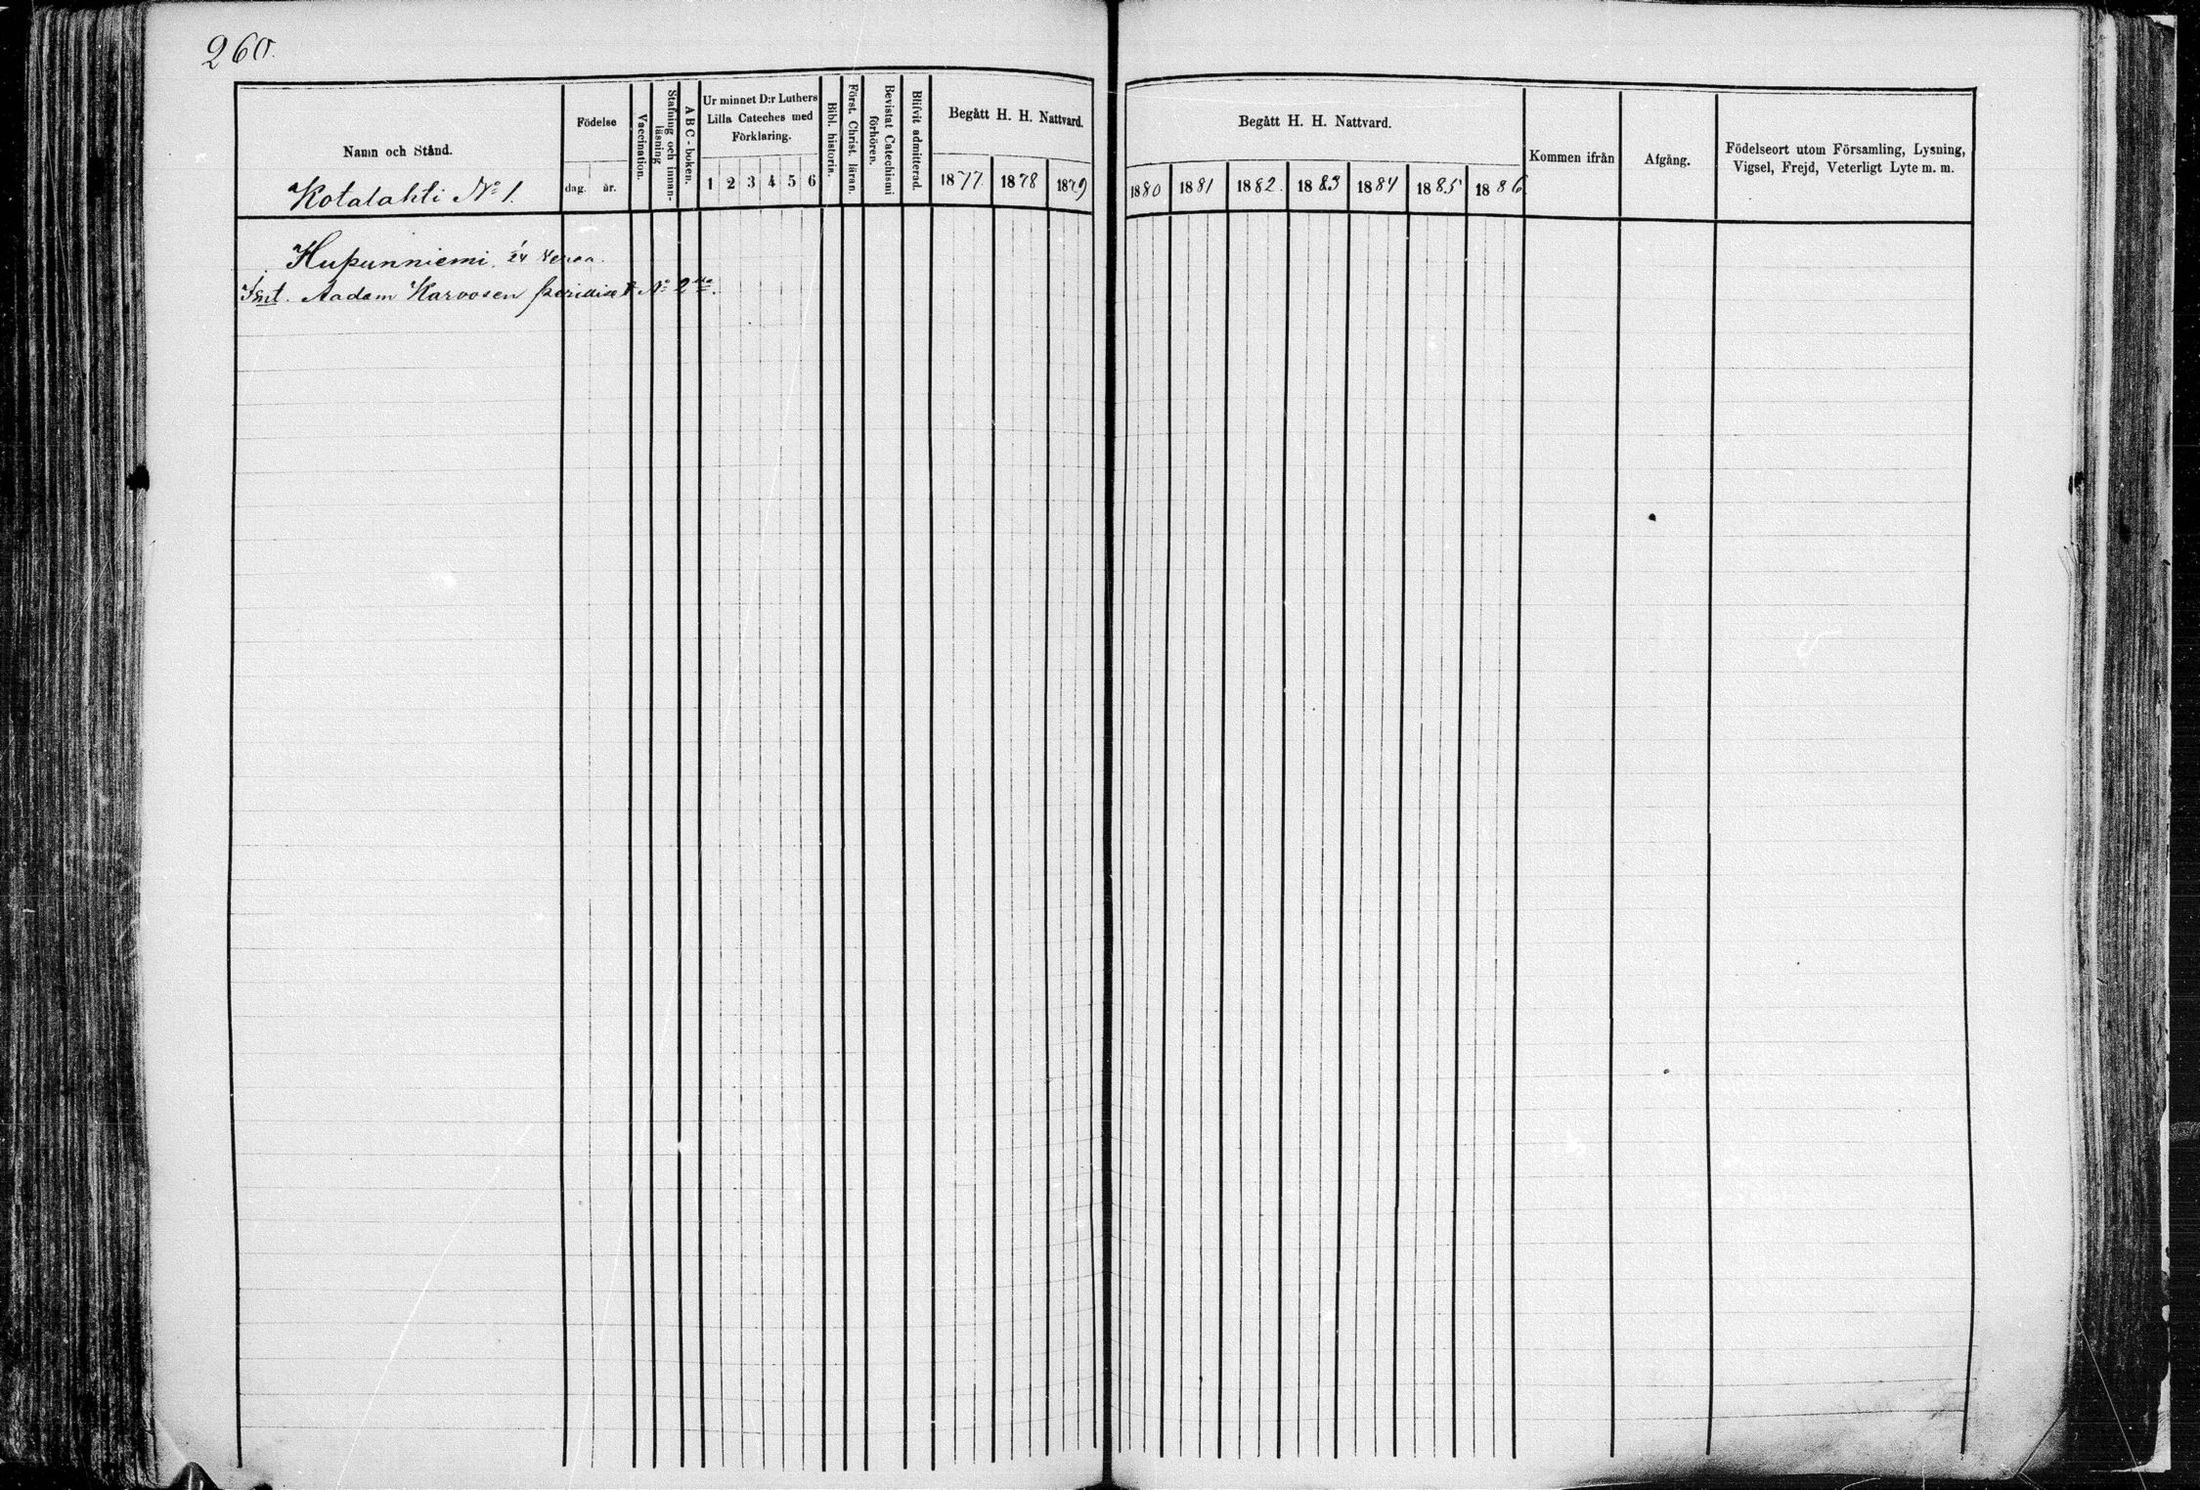 260.
Namn och Stånd.
Kotalahti No 1.
Födelse
dag. år.
Vaccination.
Stafning och innanläsning
ABC-boken.
Ur minnet D:r Luthers
Lilla Cateches med
Förklaring.
1 2 3 4 5 6
Bibl. historia.
Först. Christ. läran.
Bevistat Catechismi
förhören.
Blifvit admitterad.
Begått H. H. Nattvard.
1877. 1878 1879
Begått H. H. Nattvard.
1880 1881 1882. 1883 1884 1885 1886
Kommen ifrån
Afgång.
Födelseort utom Församling, Lysning,
Vigsel, Frejd, Veterligt Lyte m. m.
Hupunniemi,
Aadam Karvosen No 2